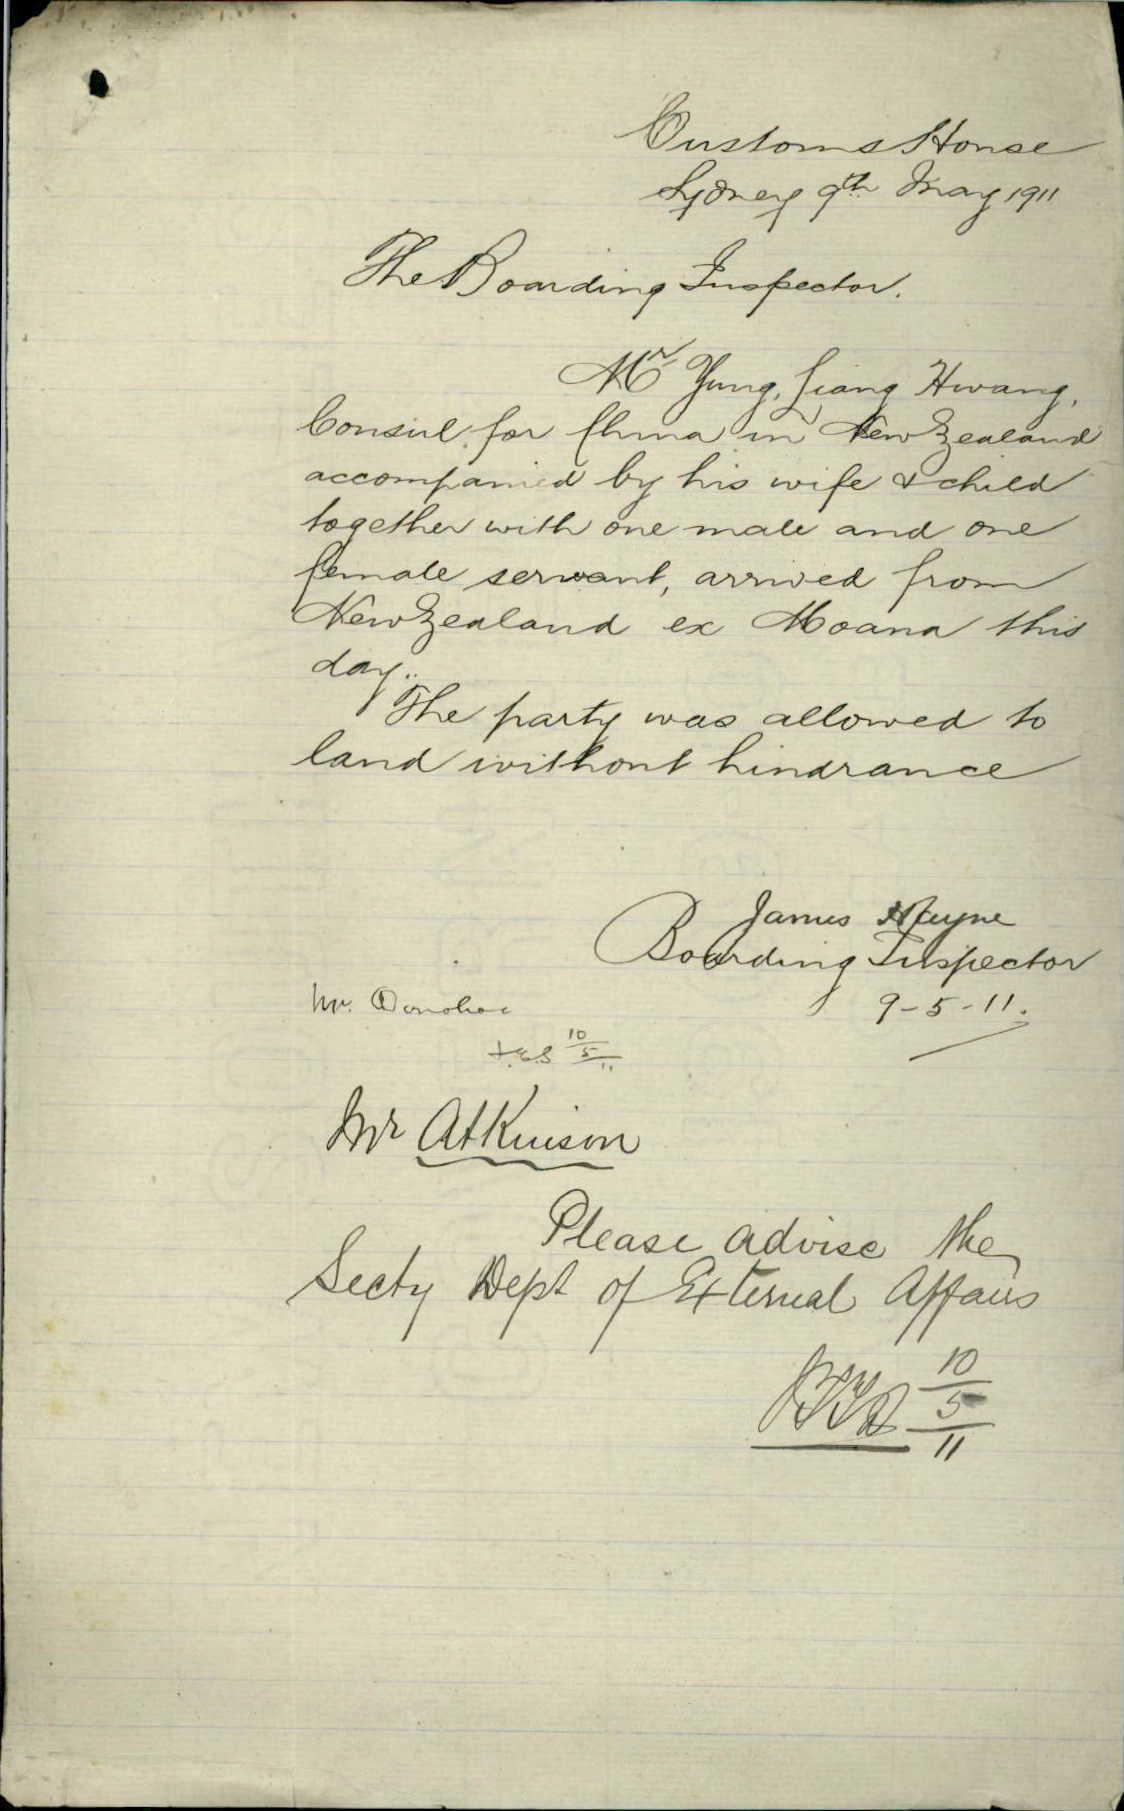 Customs House
Sydney 9th May 1911
The Boarding Inspector.
Mr Yung, Liang Hwang,
Consul for China in New Zealand
accompanied by his wife & child
together with one male and one
female servant, arrived from
New Zealand ex Moana this
day.
The party was allowed to
land without hindrance
James
Boarding Inspector
9-5-11.
Mr. Donohoe
10/5/11
Mr Atkinson
Please advise the
Secty Dept of External Affairs
10/5/11